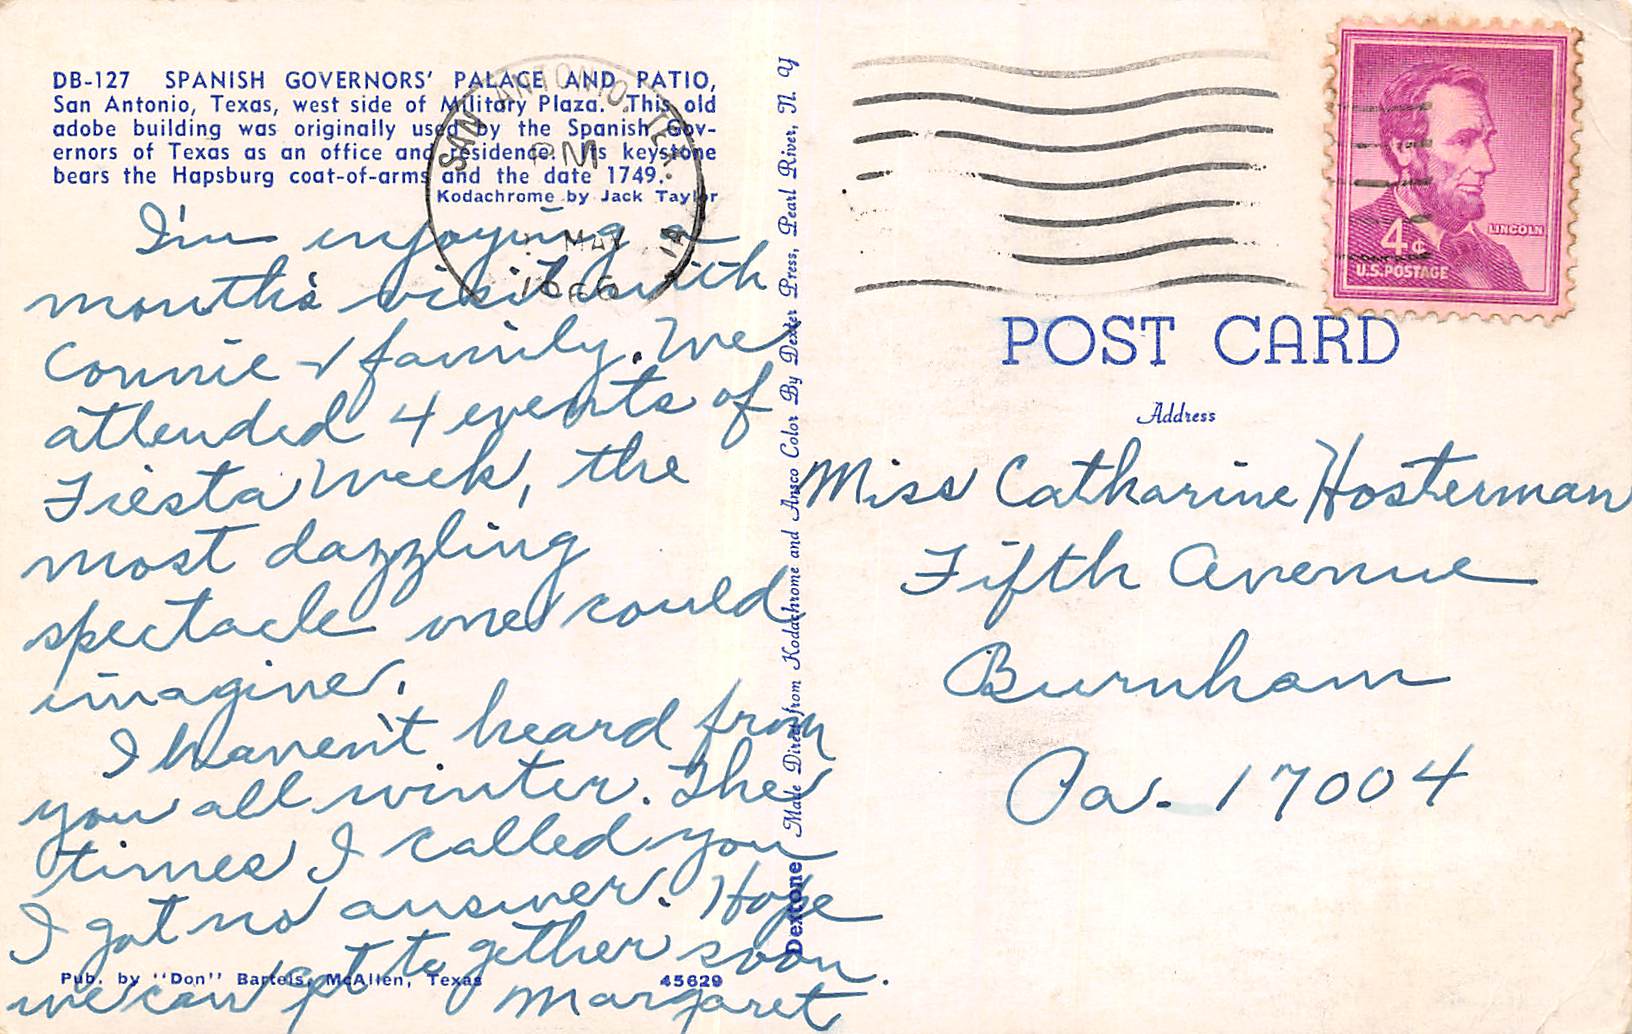 DB-127 SPANISH GOVERNORS' PALACE AND PATIO,
San Antonio, Texas, west side of Military Plaza. This old
adobe building was originally used by the Spanish Gov-
ernors of Texas as an office and residence. Its keystone
bears the Hapsburg coat-of-arms and the date 1749.
Kodachrome by Jack Taylor
I'm enjoying a
month's visit with
Connie & family. We
attended 4 events of
Fiesta Week, the
most dazzling
spectacle one could
imagine.
I haven't heard from
you all winter. The
times I called you
I got no answer. Hope
we can get together soon.
Margaret
Pub. by "Don" Bartels, McAllen, Texas
45629
Dextone Made Direct from Kodachrome and Ansco Color By Dexter Press, Pearl River, N. Y
SAN ANTONIO, TEX.
PM
MAY
1966
4¢
LINCOLN
U.S. POSTAGE
POST CARD
Address
Miss Catharine Hosterman
Fifth Avenue
Burnham
Pa. 17004